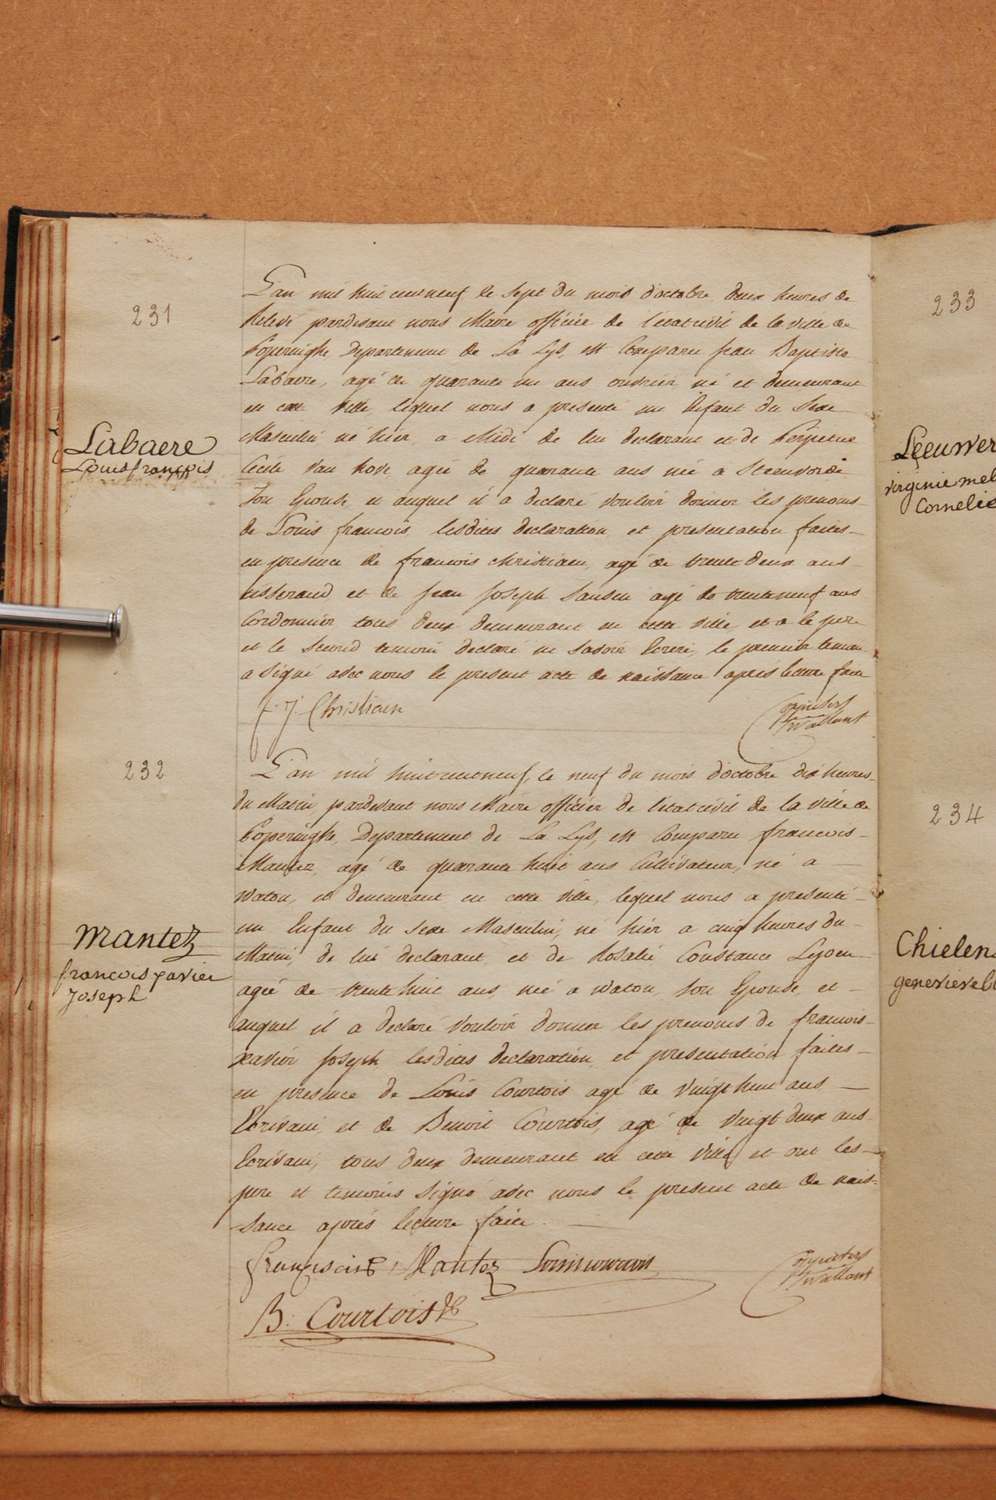 231
Labaere
Louis françois
L'an mil huit cent neuf le Sept du mois d'octobre deux heures de
Relevé pardevant nous Maire officier de l'état civil de la ville de
Poperinghe, Departement de La Lys, est Comparu Jean Baptiste
Labaere, agé de quarante un ans ouvrier né et demeurant
en cette Ville, lequel nous a presenté un Enfant du Sexe
Masculin né hier, a Midi de lui declarant et de Perpetue
Cecile Van hove agée de quarante ans née a Steenvorde
Son Epouse et auquel il a declaré vouloir donner les prenoms
de Louis francois, lesdites declaration et presentation faites
en presence de francois Christiaen, agé de trente deux ans
tisserand et de Jean Joseph Sansen agé de trente neuf ans
Cordonnier tous deux demeurant en cette ville et a le pere
et le second temoin declaré ne savoir Ecrire, le premier temoin
a Signé avec nous le present acte de naissance apres lecture faite
f. J. Christiaen
232
Mantez
francois xavier
Joseph
L'an mil huit cent neuf, le neuf du mois d'octobre dix heures
du Matin pardevant nous Maire officier de l'état civil de la ville de
Poperinghe, Departement de La Lys, est Comparu francois
Mantez, agé de quarante huit ans Cultivateur, né a
Watou, et demeurant en cette ville, lequel nous a presenté
un Enfant du Sexe Masculin, né hier a cinq heures du
Matin, de lui declarant et de Rosalie Constance Lyoen
agée de trente huit ans, née a Watou, son Epouse et
auquel il a declaré vouloir donner les prenoms de francois
xavier Joseph lesdites declaration et presentation faites
en presence de Louis Courtois agé de vingt huit ans
Ecrivain, et de Benoit Courtois, agé de vingt deux ans
Ecrivain, tous deux demeurant en cette Ville et ont les
pere et temoins Signé avec nous le present acte de nais-
sance aprés lecture faite.
Mantez
B. Courtois
233
Leeuwer
virginie mel
Cornelie
234
Chielen
genevieve